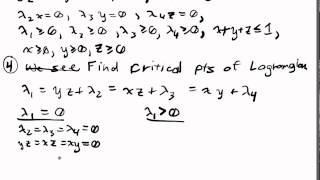 λ₂x=0, λ₃y=0, λ₄z=0,
λ₁≥0, λ₂≥0, λ₃≥0, λ₄≥0, x+y+z≤1,
x≥0, y≥0, z≥0
④ We see Find critical pts of Lagrangian
λ₁ = yz+λ₂ = xz+λ₃ = xy+λ₄
λ₁=0 λ₁>0
λ₂=λ₃=λ₄=0
yz=xz=xy=0